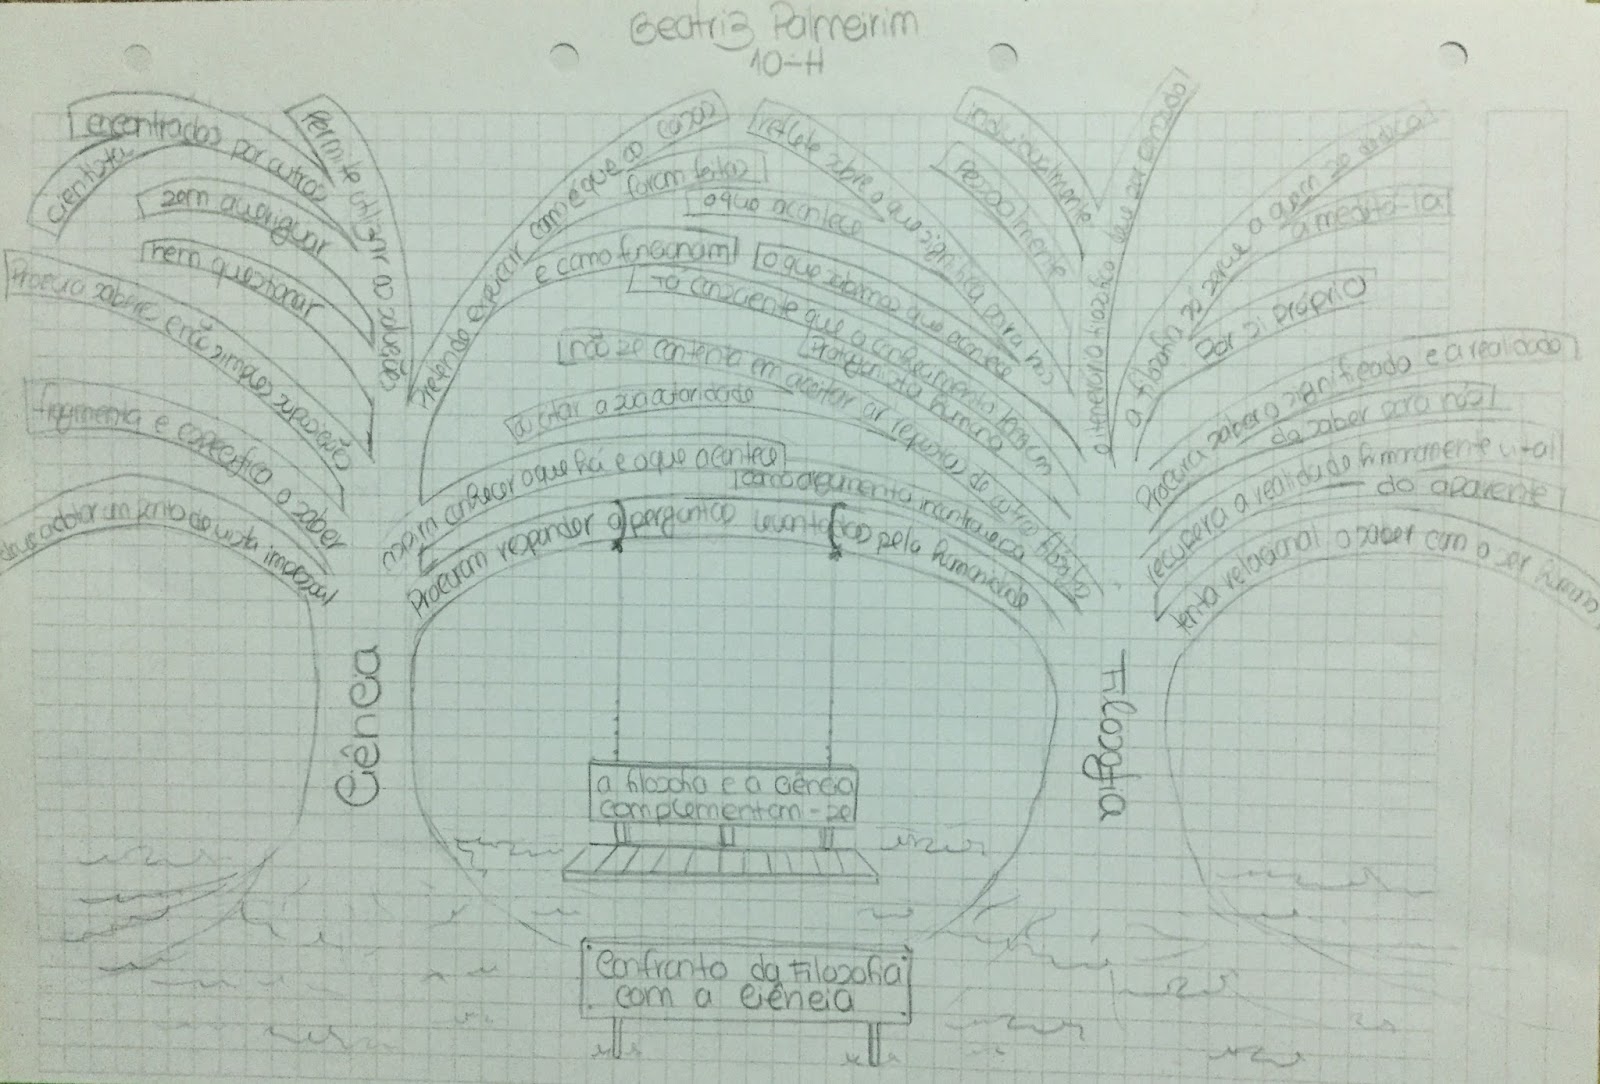 Beatriz Palmeirim
10-H
Permite utilizar as soluções
encontradas por outros
cientistas
sem averiguar
nem questionar
Procura saber e não simples suposição
fragmenta e especifica o saber
deve adotar um ponto de vista impessoal
Ciência
Pretende explicar como é que as coisas
foram feitas
e como funcionam
o que acontece
reflete sobre o que significa para nós
o que sabemos que acontece
consciente que o conhecimento
Protagonista humano
não se contenta em aceitar as respostas de outros filósofos
a citar a sua autoridade
como argumento
conhecer o que há e o que acontece
Procuram responder a perguntas levantadas pela humanidade
individualmente
pessoalmente
o itinerário filosófico deve ser pensado
a filosofia só serve a quem se dedica
a meditá-la
por si próprio
Procura saber o significado e a realidade
do saber para nós
recupera a realidade humanamente vital
do aparente
tenta relacionar o saber com o ser humano
Filosofia
a filosofia e a ciência
complementam-se
Confronto da Filosofia
com a Ciência